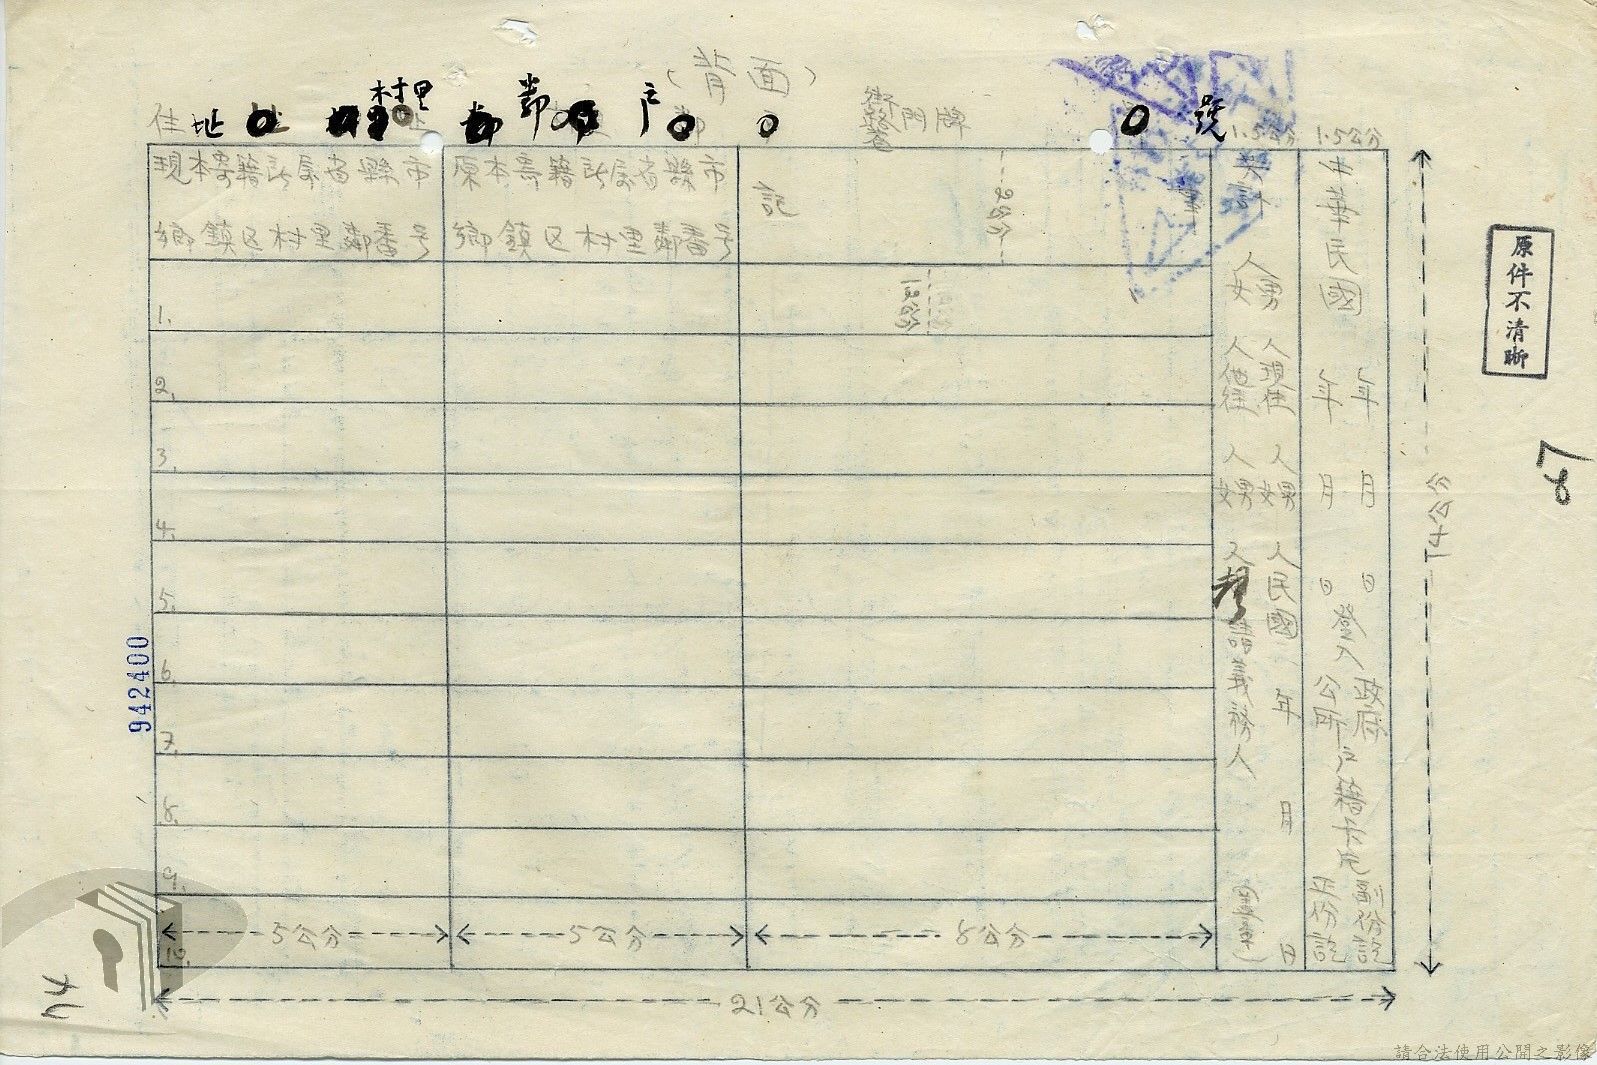 (背面)
住址 村里 鄰 戶 街路巷門牌 號
1.5公分 1.5公分
現本寄籍所屬省縣市
鄉鎮区村里鄰番号
原本寄籍所屬省縣市
鄉鎮区村里鄰番号
記
2公分
1公分
1.
2.
3.
4.
5.
6.
7.
8.
9.
10.
5公分
5公分
8公分
21公分
共計 人男女 人現住他往 人男女 人
民國 年 月 日
請義務人 (蓋章)
中華民國 年 月 日 登入 政府 戶籍卡片 副份訖
年 月 日 公所 正份訖
原件不清晰
942400
請合法使用公開之影像